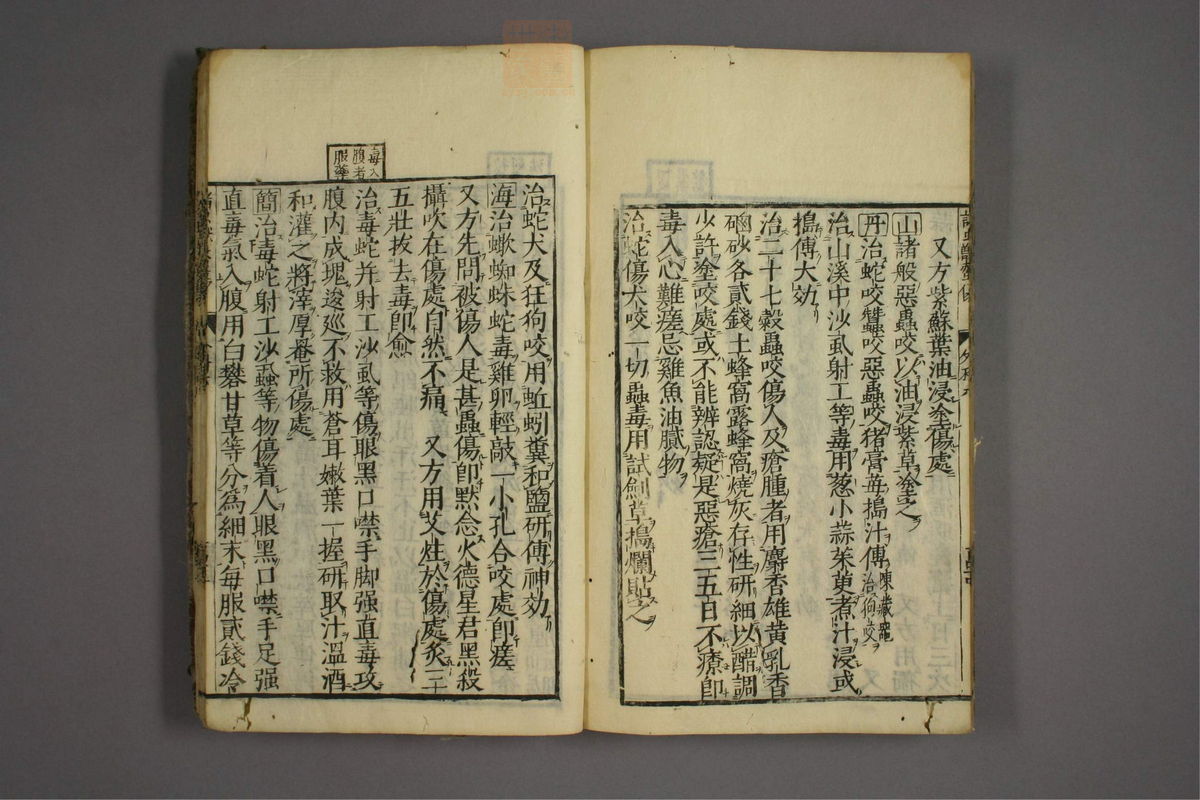 又方紫蘇葉油浸塗傷處
山諸般惡蟲咬以油浸紫草塗之
丹治蛇咬蠶咬惡蟲咬猪膏苺搗汁傅 治狗咬
治山溪中沙虱射工等毒用葱小蒜茱萸煮汁浸或
搗傅大効
治二十七般蟲咬傷人及瘡腫者用麝香雄黄乳香
硇砂各貳錢土蜂窩露蜂窩燒灰存性研細以醋調
少許塗咬處或不能辨認疑是惡瘡三五日不療即
毒入心難瘥忌雞魚油膩物
治蛇傷犬咬一切蟲毒用試劍草搗爛貼之
治蛇犬及狂狗咬用蚯蚓糞和鹽研傅神効
海治蠍蜘蛛蛇毒雞卵輕敲一小孔合咬處即瘥
又方先問被傷人是甚蟲傷即默念火德星君黑殺
攝吹在傷處自然不痛 又方用艾炷於傷處灸三
五壯拔去毒即愈
毒入腹者服藥
治毒蛇并射工沙虱等傷眼黑口噤手脚强直毒攻
腹内成塊逡巡不救用蒼耳嫩葉一握研取汁溫酒
和灌之將滓厚罨所傷處
簡治毒蛇射工沙蟲等物傷着人眼黑口噤手足强
直毒氣入腹用白礬甘草等分為細末每服貳錢冷